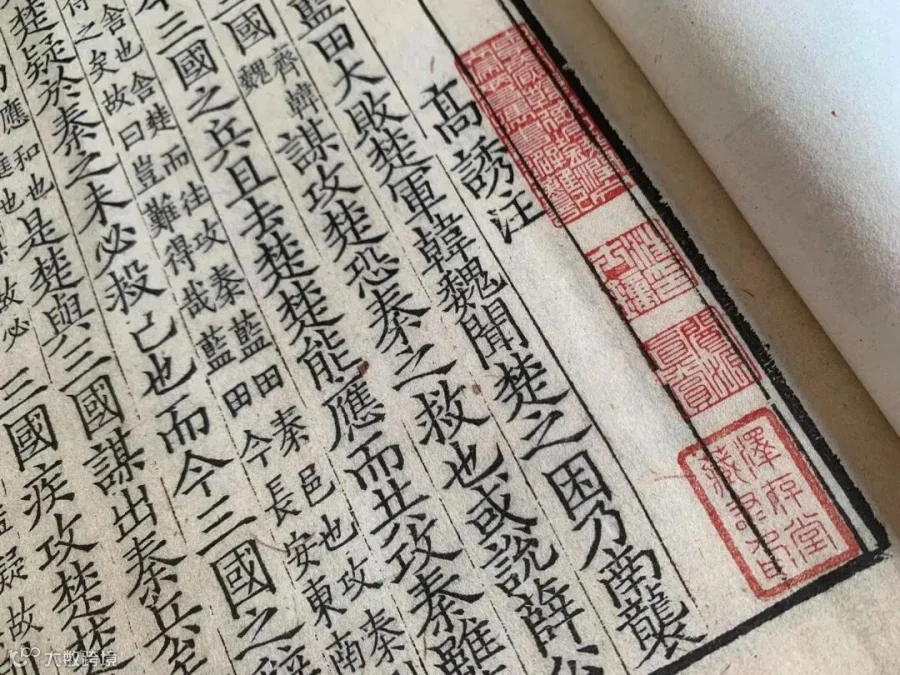 高誘注
藍田大敗楚軍韓魏聞楚之困乃南襲
國
齊韓
魏
謀攻楚恐秦之救也或說薛公
三國之兵且去楚楚能應而共攻秦雖
舍也舍楚而往攻秦藍田秦邑也攻秦
得之矣故曰豈難得哉藍田今長安東南
楚疑於秦之未必救己也而今三國之辭
應和也
是楚與三國謀出秦兵至
三國疾攻楚楚
澤存堂
藏書印
大数跨境